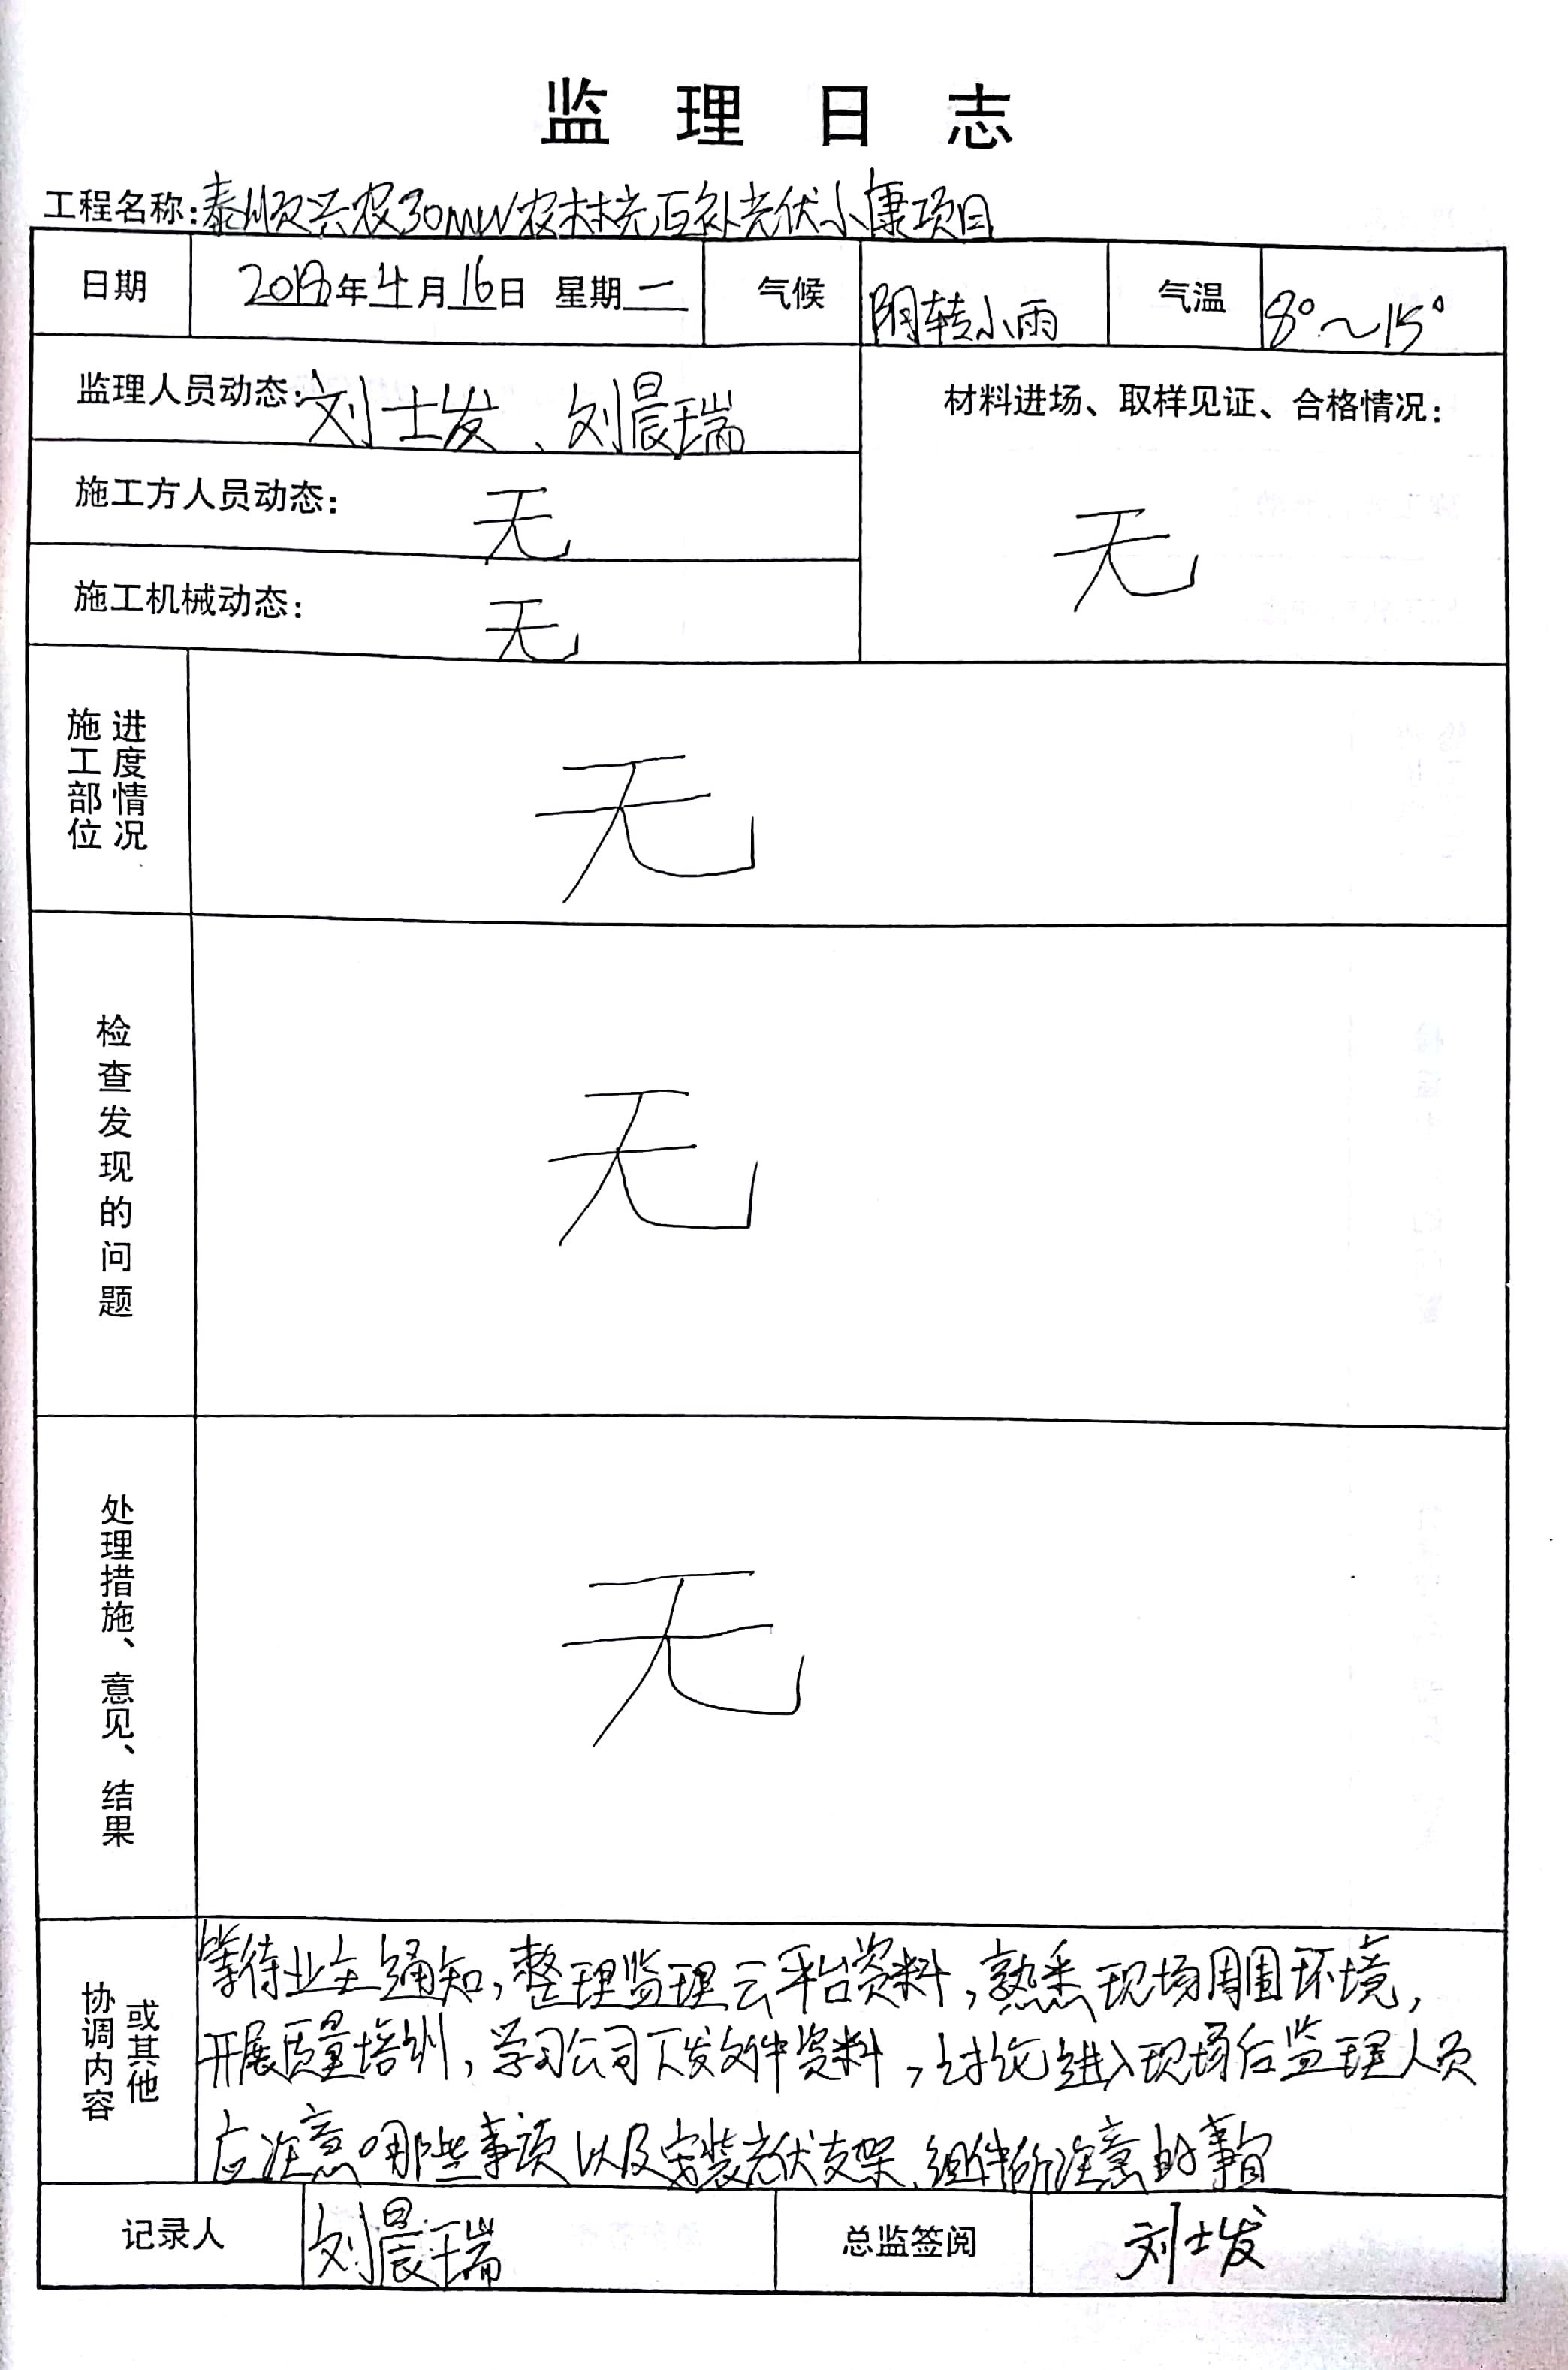 监理日志
工程名称:泰顺兴农30MW农林光互补光伏小康项目
日期 2018年4月16日 星期一 气候 阴转小雨 气温 8°~15°
监理人员动态:刘士发、刘晨瑞
材料进场、取样见证、合格情况:
无
施工方人员动态: 无
施工机械动态: 无
施工部位
进度情况
无
检查发现的问题
无
处理措施、意见、结果
无
协调内容
或其他
等待业主通知,整理监理云平台资料,熟悉现场周围环境,
开展质量培训,学习公司下发文件资料,讨论进入现场后监理人员
应注意哪些事项以及安装光伏支架、组件所注意的事宜
记录人 刘晨瑞 总监签阅 刘士发